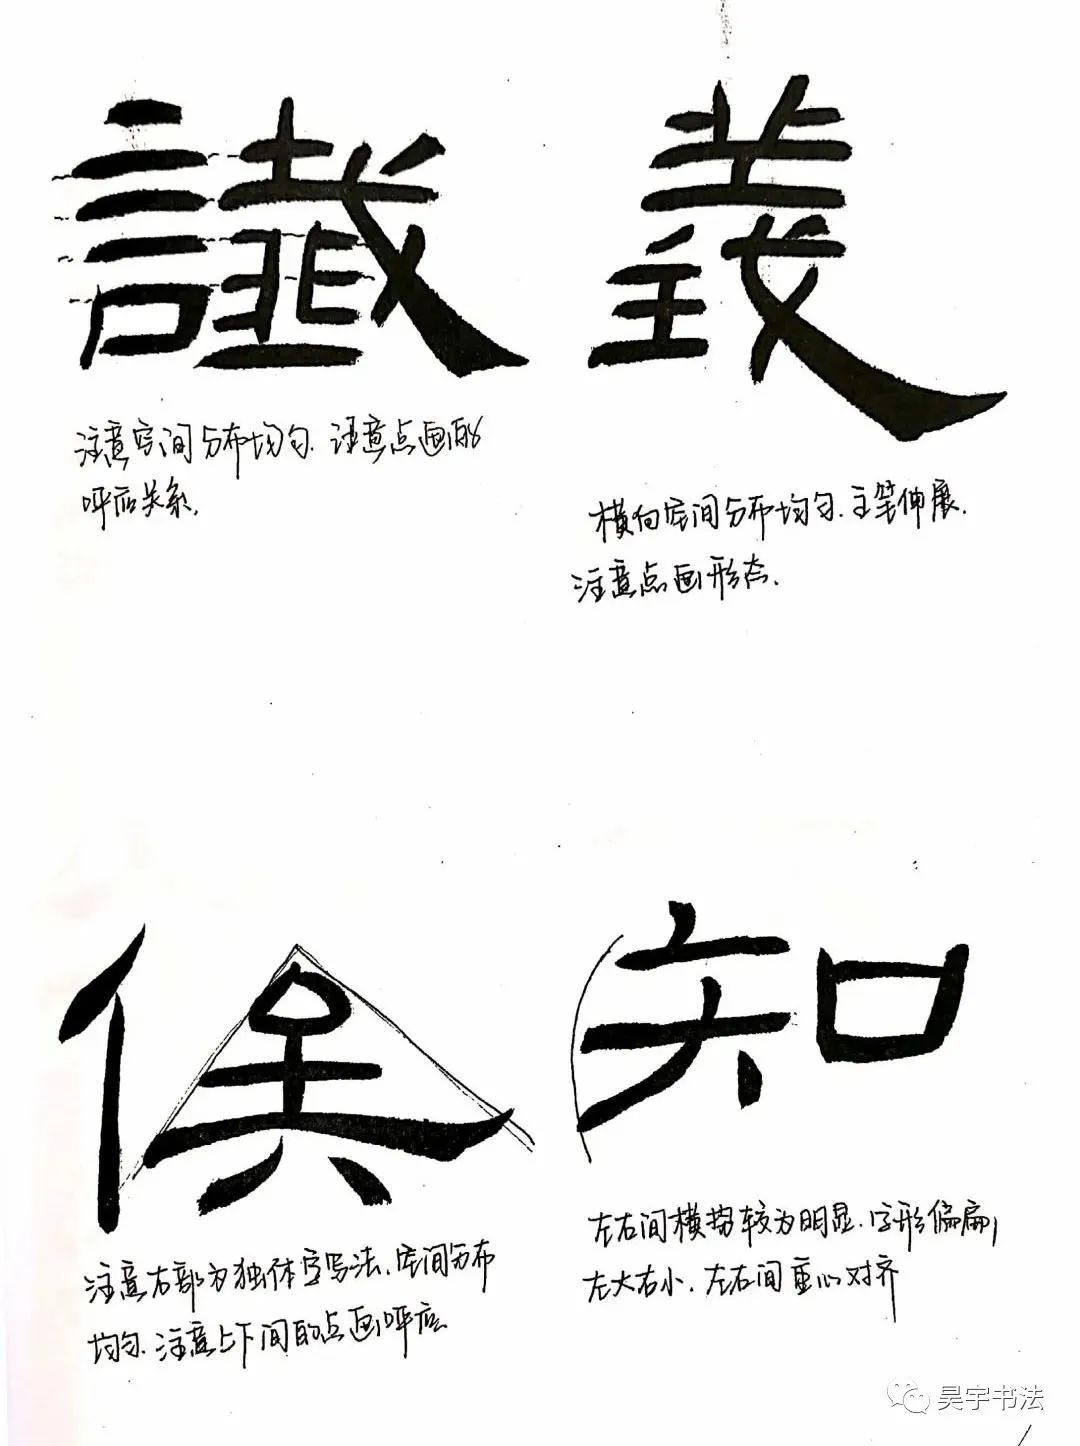 讖 義
注意空间分布均匀.注意点画的
呼应关系.
横向空间分布均匀.主笔伸展.
注意点画形态.
俟 知
注意右部为独体字写法.空间分布
均匀.注意上下间的点画呼应
左右间横势较为明显.字形偏扁,
左大右小.左右间重心对齐
昊宇书法